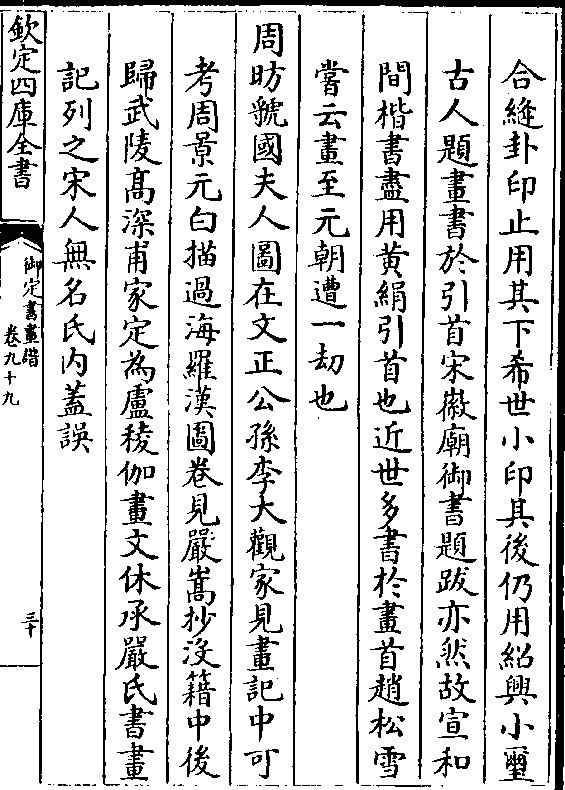 合縫卦印止用其下希世小印其後仍用紹興小璽
古人題畫書於引首宋徽廟御書題跋亦然故宣和
間楷書盡用黄絹引首也近世多書於畫首趙松雪
嘗云畫至元朝遭一刼也
周昉虢國夫人圖在文正公孫李大觀家見畫記中可
考周景元白描過海羅漢圖卷見嚴嵩抄沒籍中後
歸武陵髙深甫家定為盧稜伽畫文休承嚴氏書畫
記列之宋人無名氏内蓋誤
欽定四庫全書
御定書畫譜
卷九十九
三十